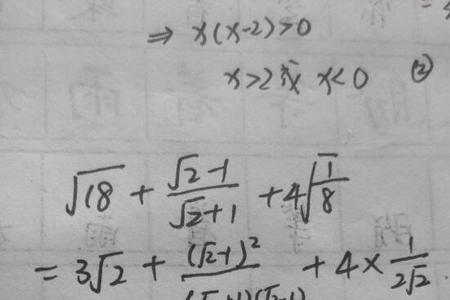 ⇒ x(x-2)>0
x>2或 x<0 ②
√18 + (√2-1)/(√2+1) + 4√(1/8)
= 3√2 + (√2-1)²/(√2+1)(√2-1) + 4×1/(2√2)